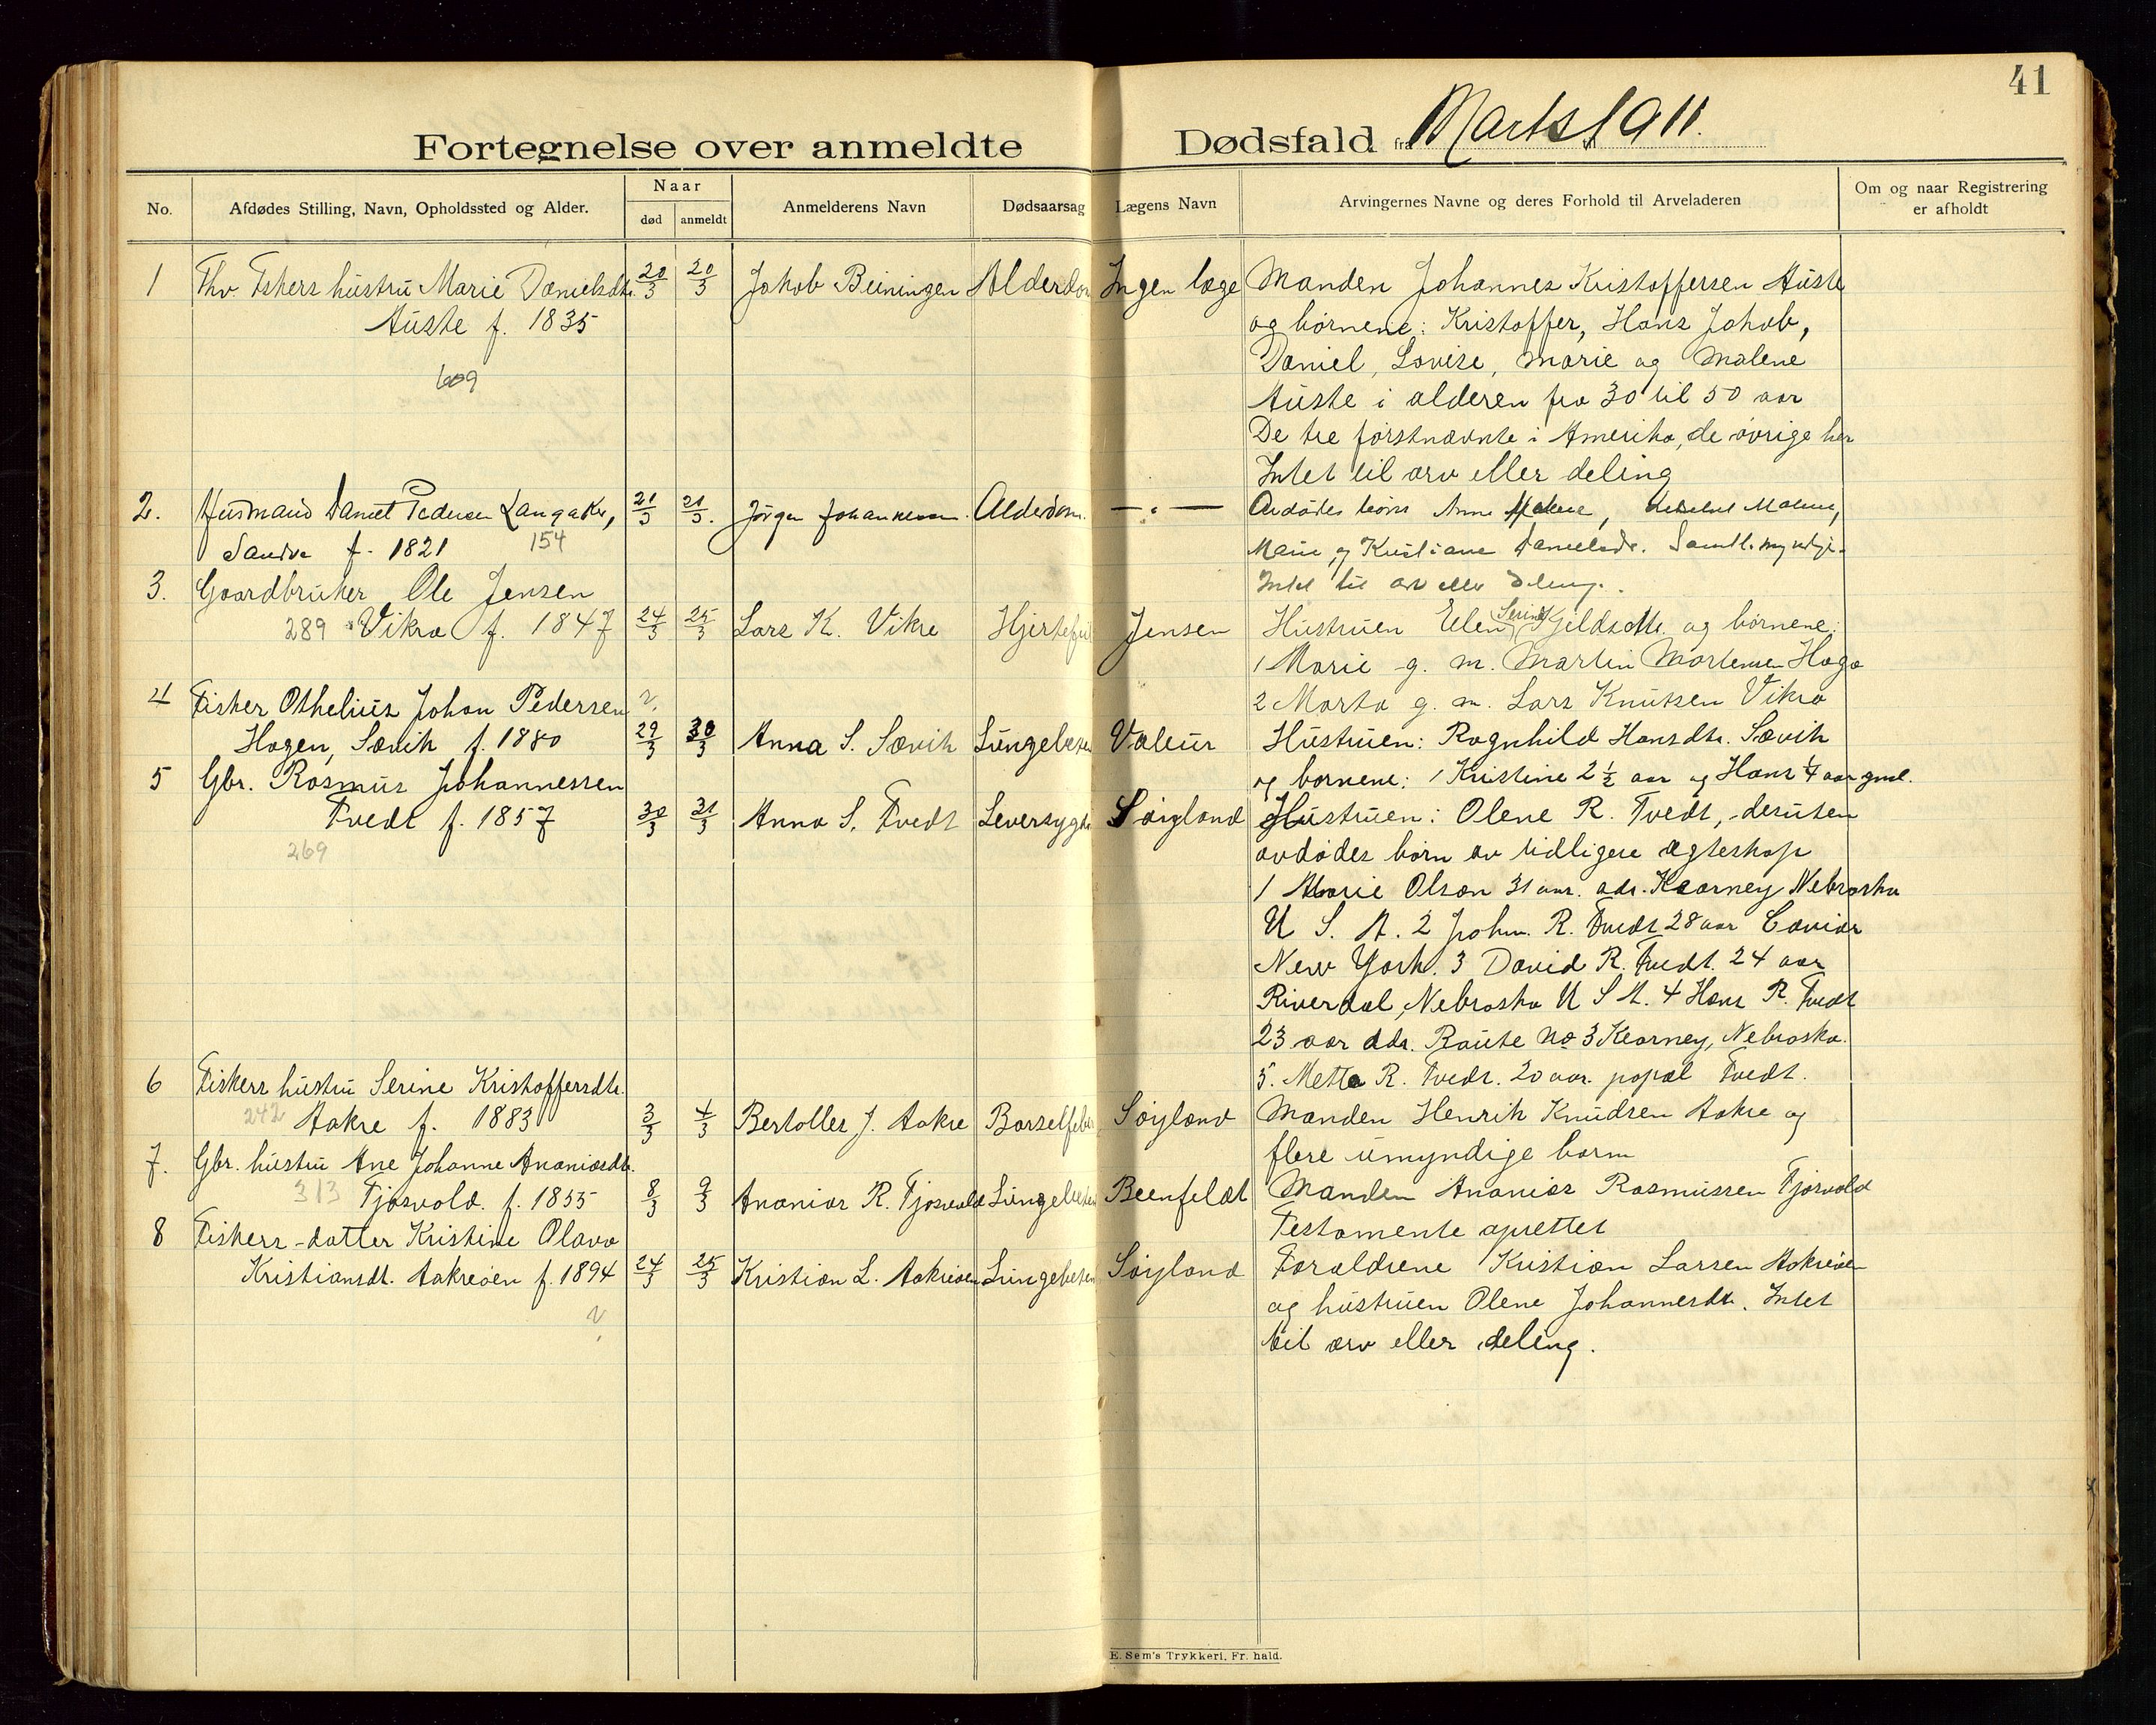 41
Fortegnelse over anmeldte Dødsfald fra Marts 1911.
No. Afdødes Stilling, Navn, Opholdssted og Alder. Naar død anmeldt Anmelderens Navn Dødsaarsag Lægens Navn Arvingernes Navne og deres Forhold til Arveladeren Om og naar Registrering er afholdt
1 Fhv. Fskers hustru Marie Danielsdtr. 20/3 20/3 Jakob Beiningen Alderdom Ingen læge Manden Johannes Kristoffersen Auste
Auste f. 1835 og børnene: Kristoffer, Hans Jakob,
609 Daniel, Lovise, Marie og Malene
Auste i alderen fra 30 til 50 aar
De tre førstnævnte i Amerika, de øvrige her
Intet til arv eller deling
2. Husmand Daniel Pedersen Langaker, 21/3 21/3. Jørgen Johannessen. Alderdom. — " — Avdødes børn Anne Malene, Malene,
Sandve f. 1821 154 Marie, og Kristiane Danielsdr. Samtl. myndige.
3. Gaardbruker Ole Jensen Intet til arv eller deling.
289 Vikra f. 1847 24/3 25/3 Lars K. Vikre Hjertefeil Jensen Hustruen Elen Serine Kjeldsdtr. og børnene:
1 Marie g. m. Martin Mortensen Haga
4 Fisker Othelius Johan Pedersen v. 2 Marta g. m. Lars Knutsen Vikra
Hagen, Sævik f. 1880 29/3 30/3 Anna S. Sævik Lungebeten Valeur Hustruen: Ragnhild Hansdtr. Sævik
5 Gbr. Rasmus Johannessen og børnene: 1 Kristine 2 1/2 aar og Hans 1/4 aar gml.
Tvedt f. 1857 30/3 31/3 Anna S. Tvedt Leversygd Søyland Hustruen: Olene R. Tvedt, deruten
269 avdødes børn av tidligere ægteskap
1 Marie Olson 31 aar. adr. Kearney Nebraska
U. S. A. 2 John. R. Tvedt 28 aar Caviar
New York. 3 David R. Tvedt. 24 aar
Riverdal, Nebraska U S A. 4 Hans R. Tvedt
23 aar adr. Raute No 3 Kearney, Nebraska.
5. Metta R. Tvedt. 20 aar. popæl Tvedt.
6 Fiskers hustru Serine Kristoffersdtr.
242 Aakre f. 1883 3/3 4/3 Bertolles J. Aakre Barselfeber Søyland Manden Henrik Knudsen Aakre og
flere umyndige barn
7. Gbr. hustru Ane Johanne Ananiasdtr.
313 Tjøsvold. f. 1855 8/3 9/3 Ananias R. Tjøsvold Lungebeten Beenfeldt Manden Ananias Rasmussen Tjøsvold
Testamente oprettet
8 Fiskers-datter Kristine Olava
Kristiansdt. Aakreøen f. 1894 24/3 25/3 Kristian L. Aakreøen Lungebeten Søyland Forældrene Kristian Larsen Aakreøen
v. og hustruen Olene Johannesdtr. Intet
til arv eller deling.
E. Sem's Trykkeri, Fr. hald.